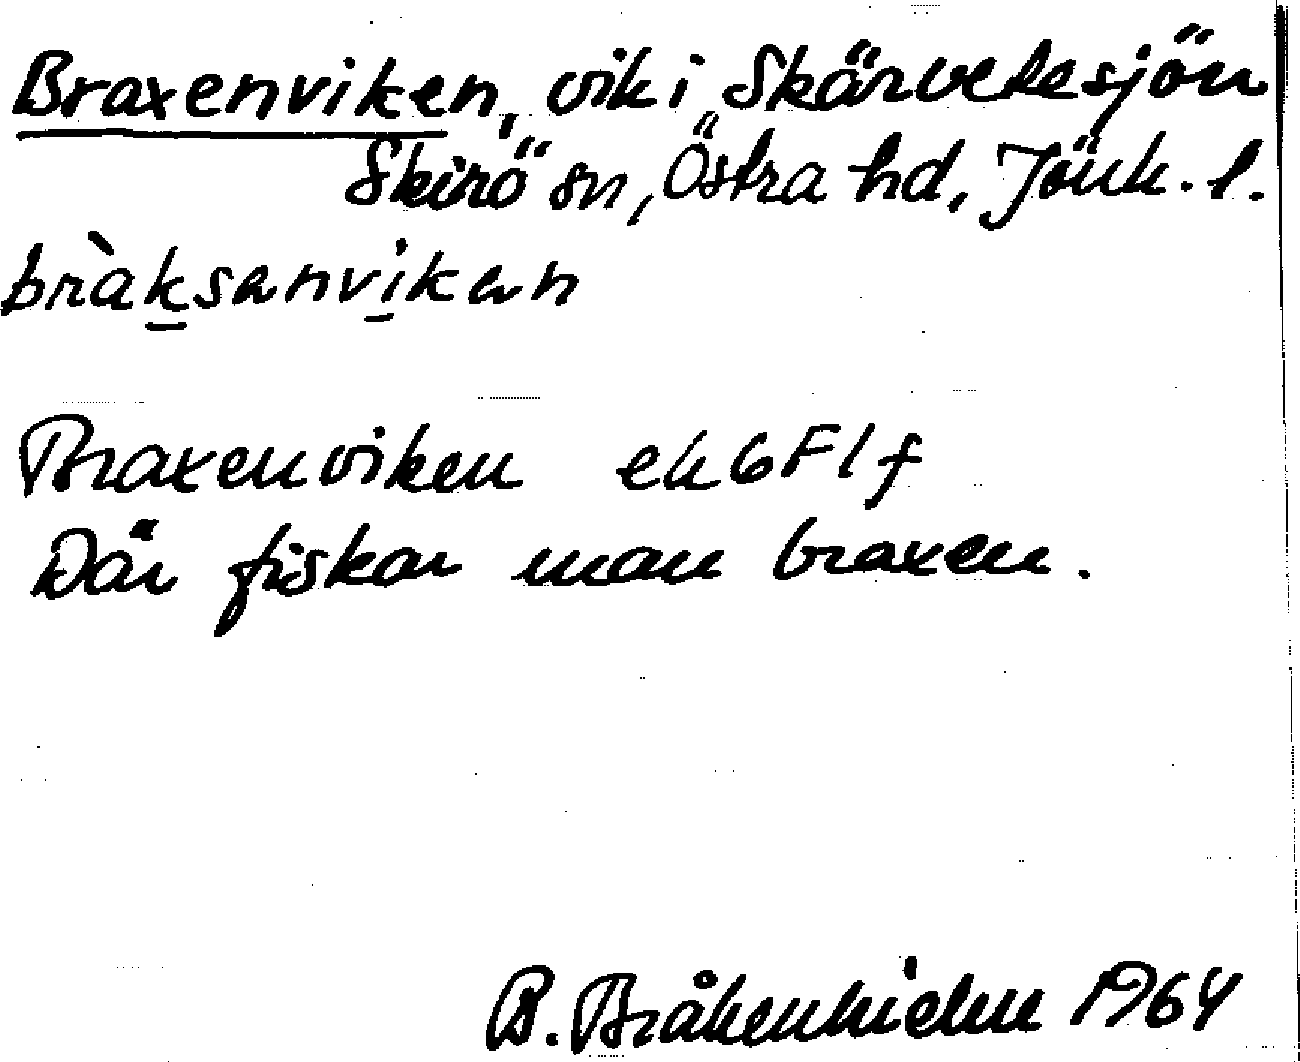 Braxenviken, vik i Skärvetesjön
Skirö sn, Östra hd, Jönk. l.
bràksanvikan
Braxenviken ek 6F1f
Där fiskar man braxen.
B. 1964